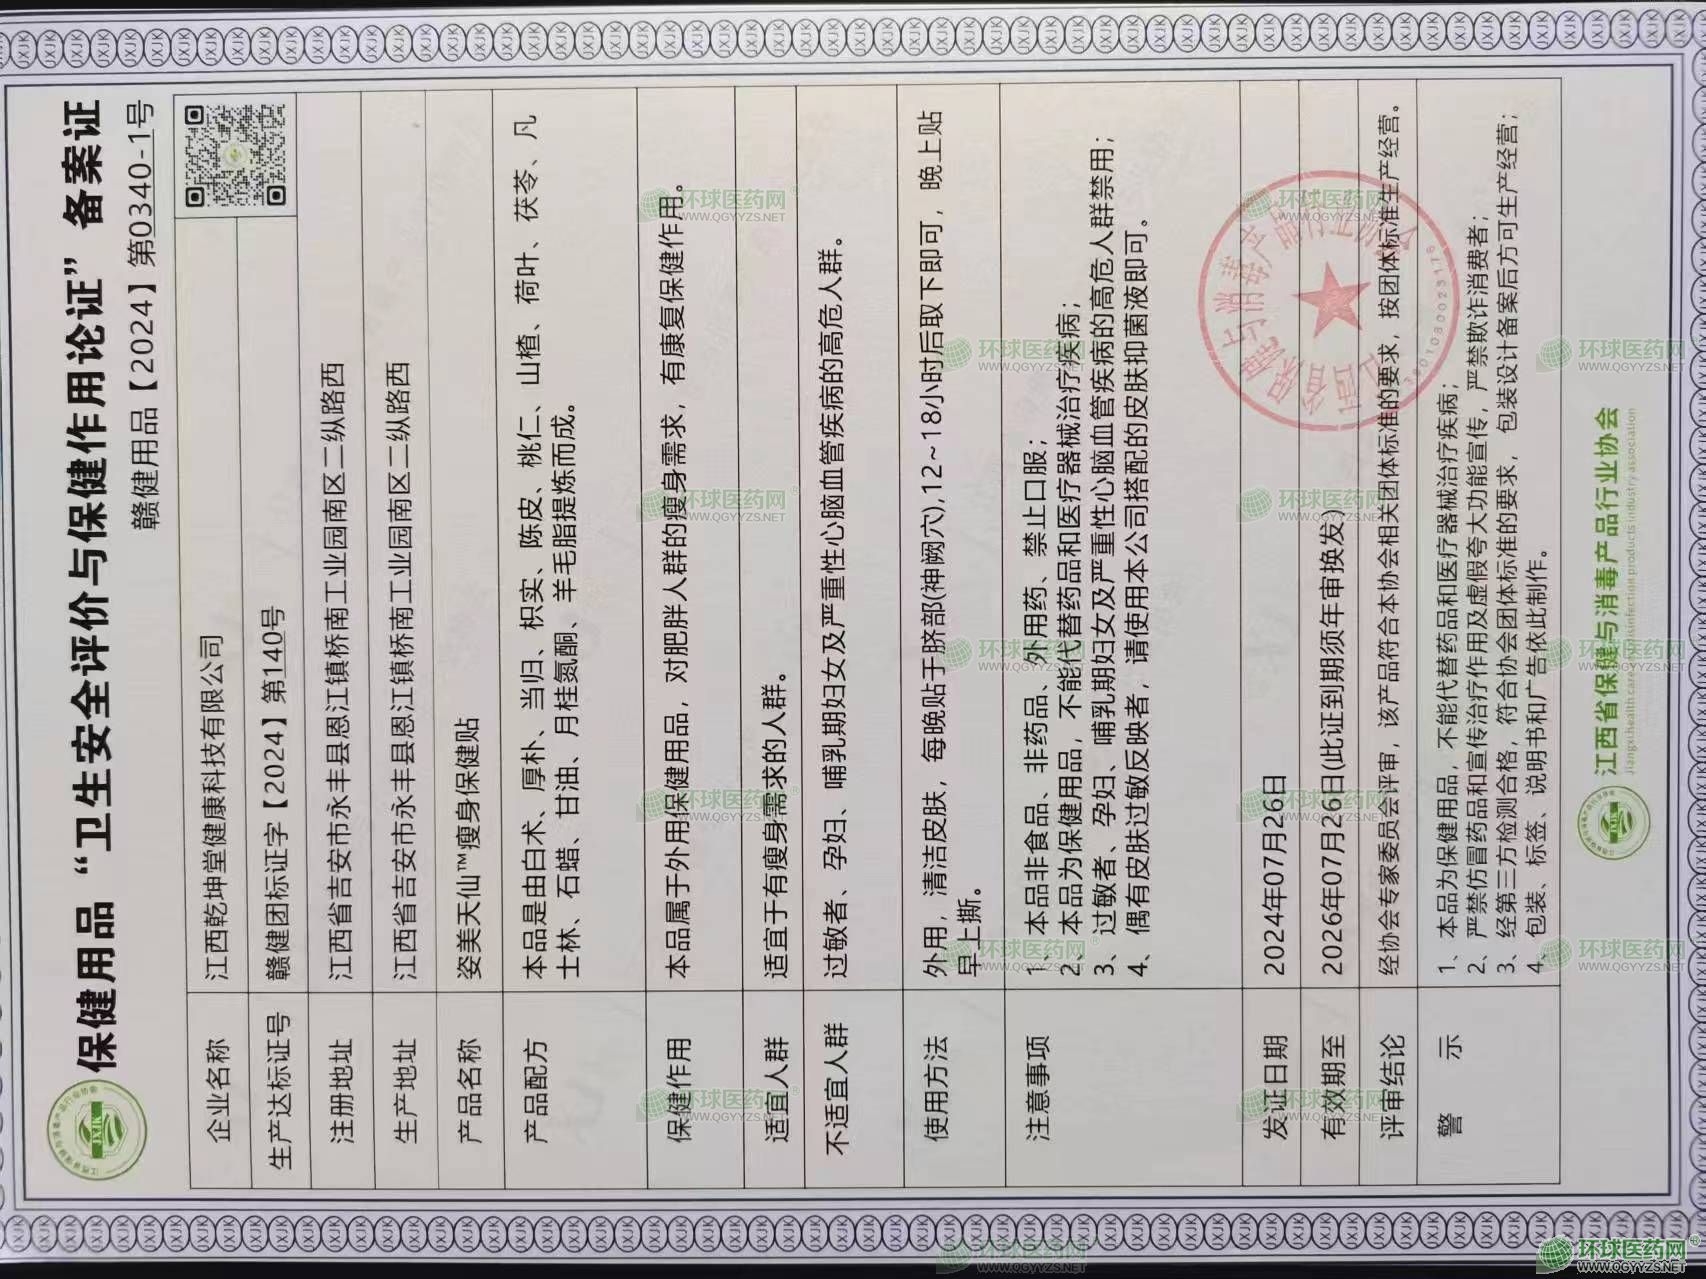 保健用品“卫生安全评价与保健作用论证”备案证
赣健用品【2024】第0340-1号
企业名称 江西乾坤堂健康科技有限公司
生产达标证号 赣健团标证字【2024】第140号
注册地址 江西省吉安市永丰县恩江镇桥南工业园南区二纵路西
生产地址 江西省吉安市永丰县恩江镇桥南工业园南区二纵路西
产品名称 姿美天仙™瘦身保健贴
产品配方 本品是由白术、厚朴、当归、枳实、陈皮、桃仁、山楂、荷叶、茯苓、凡
士林、石蜡、甘油、月桂氮酮、羊毛脂提炼而成。
保健作用 本品属于外用保健用品，对肥胖人群的瘦身需求，有康复保健作用。
适宜人群 适宜于有瘦身需求的人群。
不适宜人群 过敏者、孕妇、哺乳期妇女及严重性心脑血管疾病的高危人群。
使用方法 外用，清洁皮肤，每晚贴于脐部(神阙穴),12~18小时后取下即可，晚上贴
早上撕。
注意事项 1、本品非食品、非药品、外用药、禁止口服；
2、本品为保健用品，不能代替药品和医疗器械治疗疾病；
3、过敏者、孕妇、哺乳期妇女及严重性心脑血管疾病的高危人群禁用；
4、偶有皮肤过敏反映者，请使用本公司搭配的皮肤抑菌液即可。
发证日期 2024年07月26日
有效期至 2026年07月26日(此证到期须年审换发)
评审结论 经协会专家委员会评审，该产品符合本协会相关团体标准的要求，按团体标准生产经营。
警 示 1、本品为保健用品，不能代替药品和医疗器械治疗疾病；
2、严禁仿冒药品和宣传治疗作用及虚假夸大功能宣传，严禁欺诈消费者；
3、经第三方检测合格，符合协会团体标准的要求，包装设计备案后方可生产经营；
4、包装、标签、说明书和广告依此制作。
江西省保健与消毒产品行业协会
Jiangxi health care disinfection products industry association
JXJK
环球医药网
WWW.QGYYZS.NET